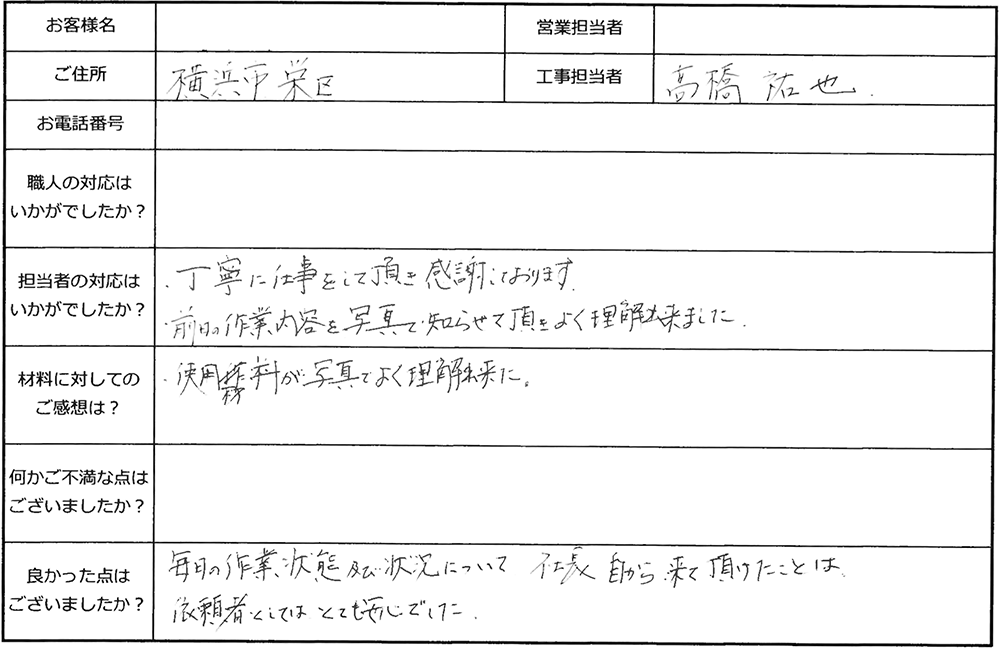 お客様名
営業担当者
ご住所 横浜市栄区
工事担当者 高橋 祐也.
お電話番号
職人の対応は
いかがでしたか？
担当者の対応は
いかがでしたか？
・丁寧に仕事をして頂き感謝しております.
・前日の作業内容を写真で知らせて頂きよく理解出来ました.
材料に対しての
ご感想は？
・使用材料が写真でよく理解出来た。
何かご不満な点は
ございましたか？
良かった点は
ございましたか？
毎日の作業状態及び状況について 社長 自から 来て頂けたことは
依頼者としてはとても安心でした.